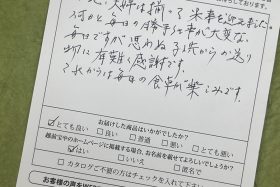 夫婦は揃って米寿を迎えました。
何かと毎日の勝手仕事が大変な
毎日ですが思わぬ子供からの送り
物に有難く感謝です。
これからは毎日の食卓が楽しみです。
お届けした商品はいかがでしたか？
とても良い □良い □普通 □悪い □とても悪い
越前宝や中のホームページに掲載する場合、お名前を載せてよろしいでしょうか？
はい □いいえ □匿名で
□カタログご不要の方はチェックを入れて下さい
お客様の声をWEB